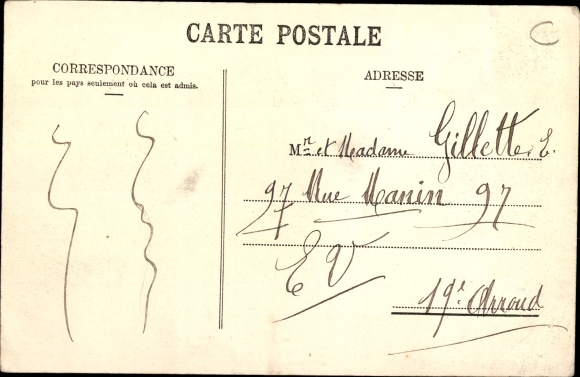 CARTE POSTALE
CORRESPONDANCE
pour les pays seulement où cela est admis.
ADRESSE
Mr et Madame Gillette. E.
97 Rue Manin 97
E V
19e Arrond